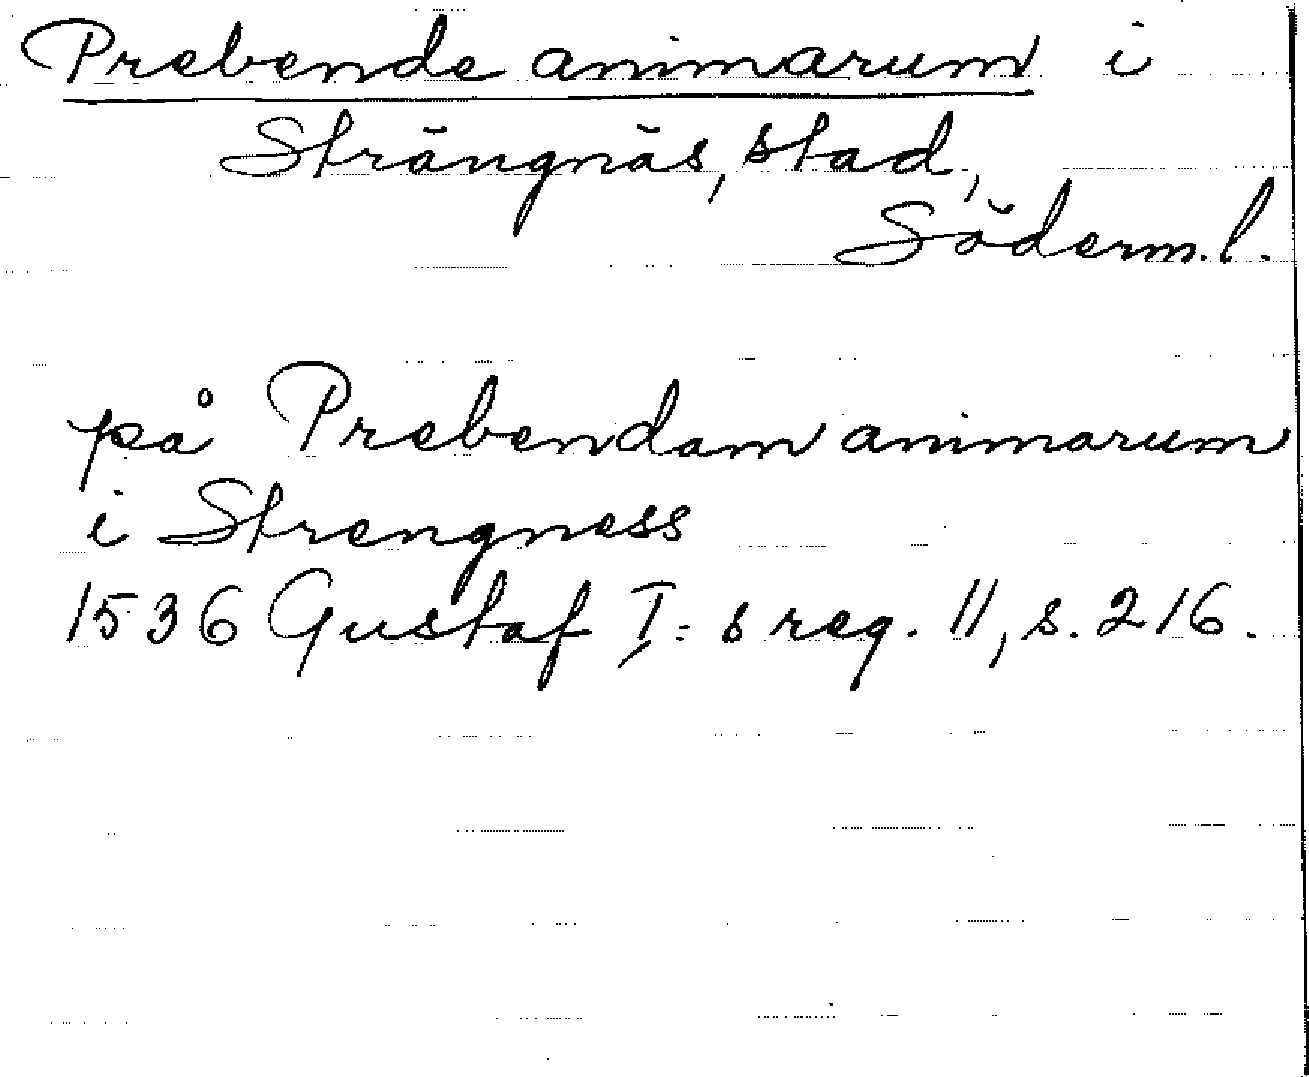 Prebende animarum i
Strängnäs, stad,
Söderm.l.
på Prebendam animarum
i Strengness
1536 Gustaf I:s reg. 11, s. 216.